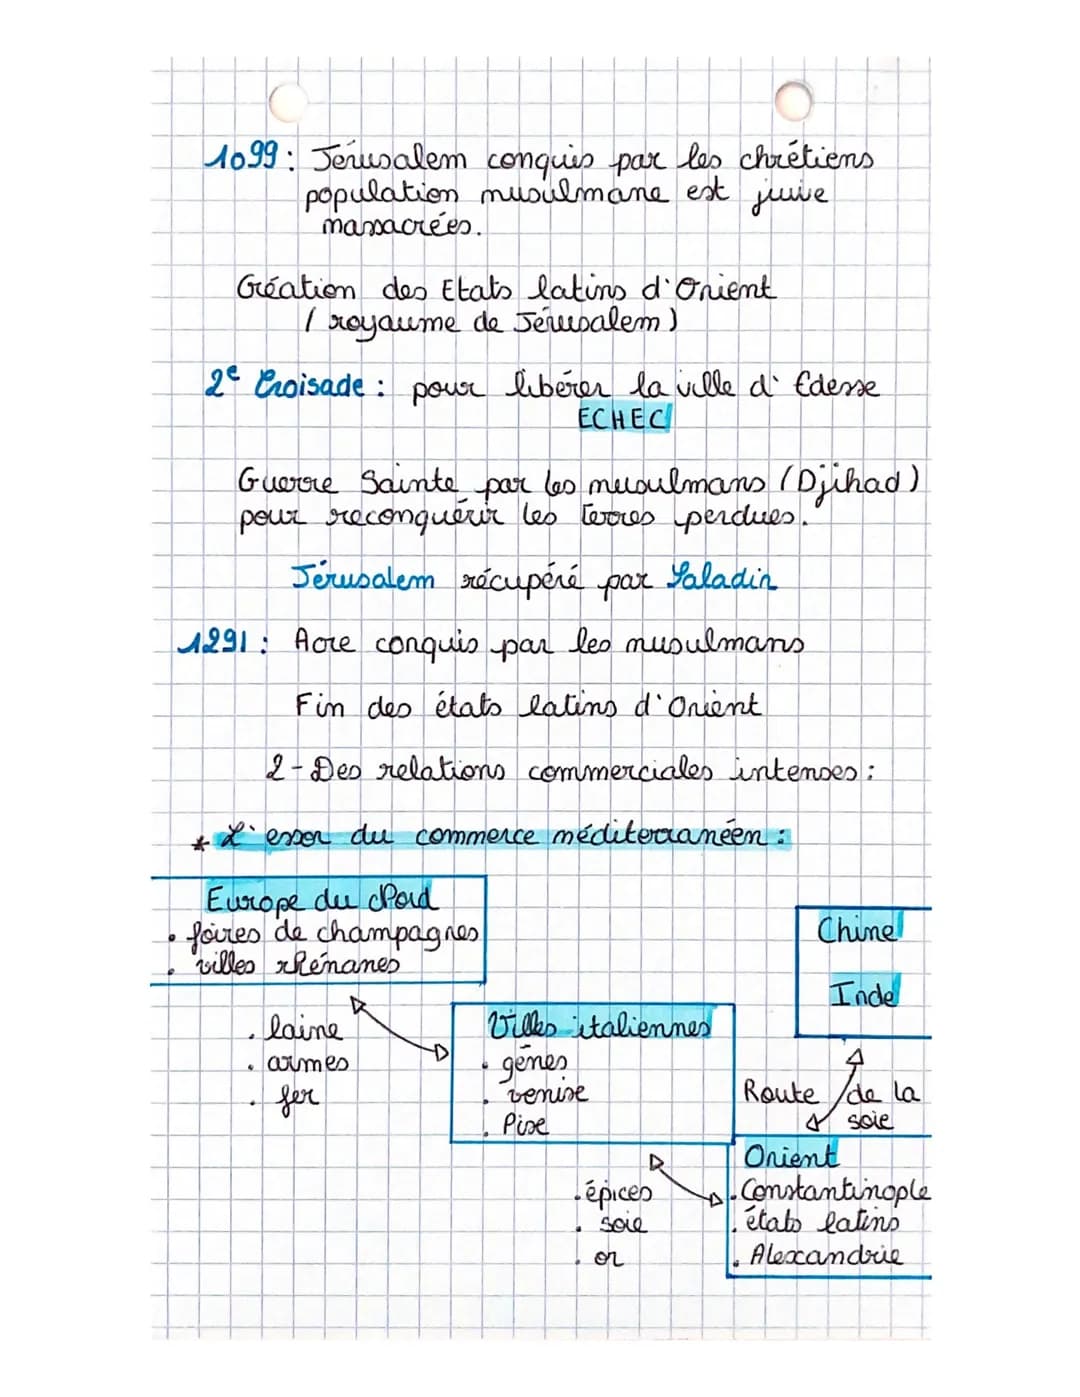 1099 : Jérusalem conquis par les chrétiens
population musulmane est juive
massacrées.
Création des Etats latins d'Orient
( royaume de Jérusalem )
2e Croisade : pour libérer la ville d' Edesse
ECHEC
Guerre Sainte par les musulmans (Djihad)
pour reconquérir les terres perdues.
Jérusalem récupéré par Saladin
1291 : Acre conquis par les musulmans
Fin des états latins d'Orient
2 - Des relations commerciales intenses :
* L'essor du commerce méditerranéen :
Europe du Nord
• foires de champagnes
• villes rhénanes
Chine
Inde
• laine
• armes
• fer
Villes italiennes
• gênes
• venise
• Pise
Route de la
soie
Orient
• Constantinople
• états latins
• Alexandrie
• épices
• soie
• or